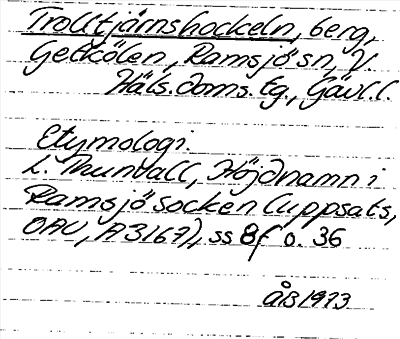 Trolltjärnshockeln, berg,
Getkölen, Ramsjö sn, V.
Häls. doms. tg., Gävl.l.
Etymologi.
L. Munvall, Höjdnamn i
Ramsjö socken (uppsats,
OAU, A 3167), ss 8f o. 36
ÅB 1973